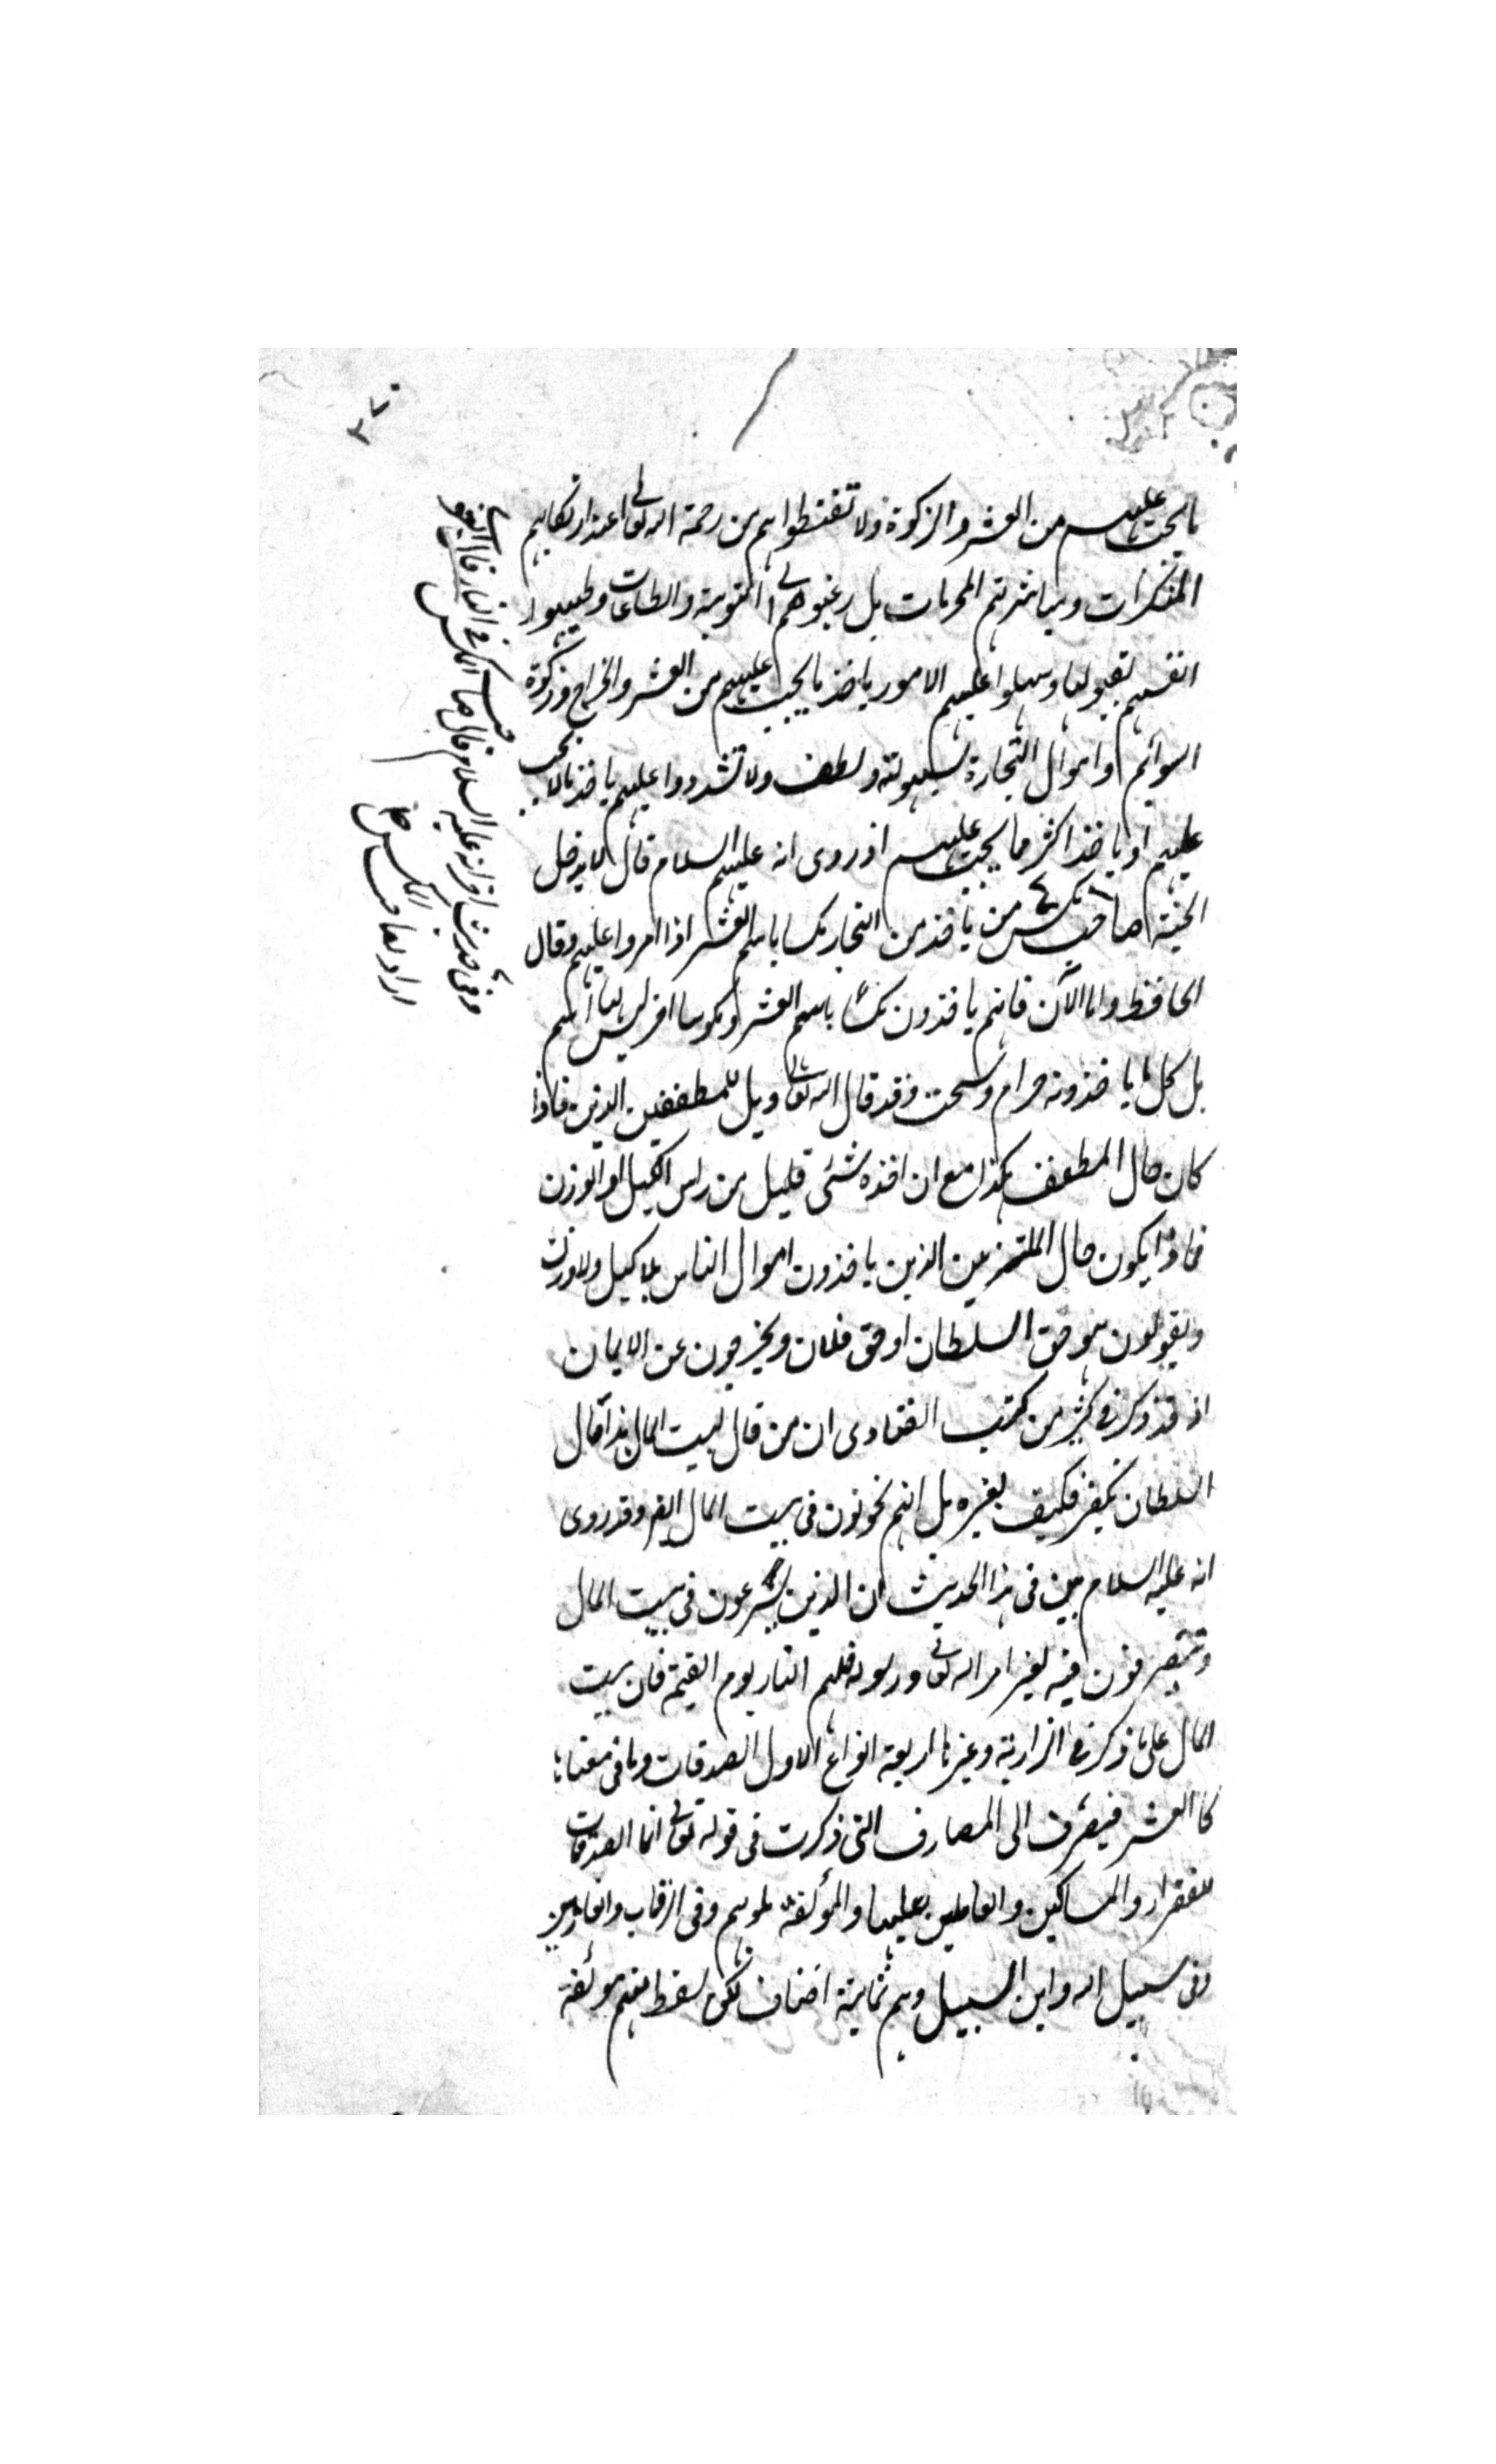 ما يجب عليهم من العشر والزكوة ولا تقنطواهم من رحمة الله تعالى عند ارتكابهم
المنكرات ومباشرتهم المحرمات بل رغبوهم الى التوبة والطاعات وطيبوا
انفسهم بقبولها وسهلوا عليهم الامور باخذ ما يجب عليهم من العشر والخراج وزكوة
السوائم واموال التجارة بسهولة ولطف ولا تشددوا عليهم باخذ ما لا يجب
عليهم او باخذ اكثر مما يجب عليهم اذ روى انه عليه السلام قال لا يدخل
الجنة صاحب مكس من ياخذ من التجار مكسا باسم العشر اذا مروا عليهم وقال
الحافظ واما الآن فانهم ياخذون مكسا باسم العشر ومكوسا اخر ليس لها اسم
بل كل ما ياخذونه حرام وسحت وقد قال الله تعالى ويل للمطففين الذين فاذا
كان حال المطفف هكذا مع ان اخذه شئ قليل من راس الكيل او الوزن
فماذا يكون حال الملتزمين الذين ياخذون اموال الناس بلا كيل ولا وزن
ويقولون هو حق السلطان او حق فلان ويخرجون عن الايمان
اذ قد ذكر في كثير من كتب الفتاوى ان من قال لبيت المال هذا مال
السلطان يكفر فكيف بغيره بل انهم يخونون في بيت المال ايضا وقد روى
انه عليه السلام بين في هذا الحديث ان الذين يشرعون في بيت المال
وتتصرفون فيه بغير امر الله تعالى ورسوله فلهم النار يوم القيمة فان بيت
المال على ما ذكر في البزازية وغيرها اربعة انواع الاول الصدقات وما في معناها
كالعشر فيصرف الى المصارف التي ذكرت في قوله تعالى انما الصدقات
للفقراء والمساكين والعاملين عليها والمؤلفة قلوبهم وفي الرقاب والغارمين
وفي سبيل الله وابن السبيل وهم ثمانية اصناف لكن سقط منهم مؤلفة
وفي حديث اخر انه عليه السلام قال صاحب المكس في النار قال